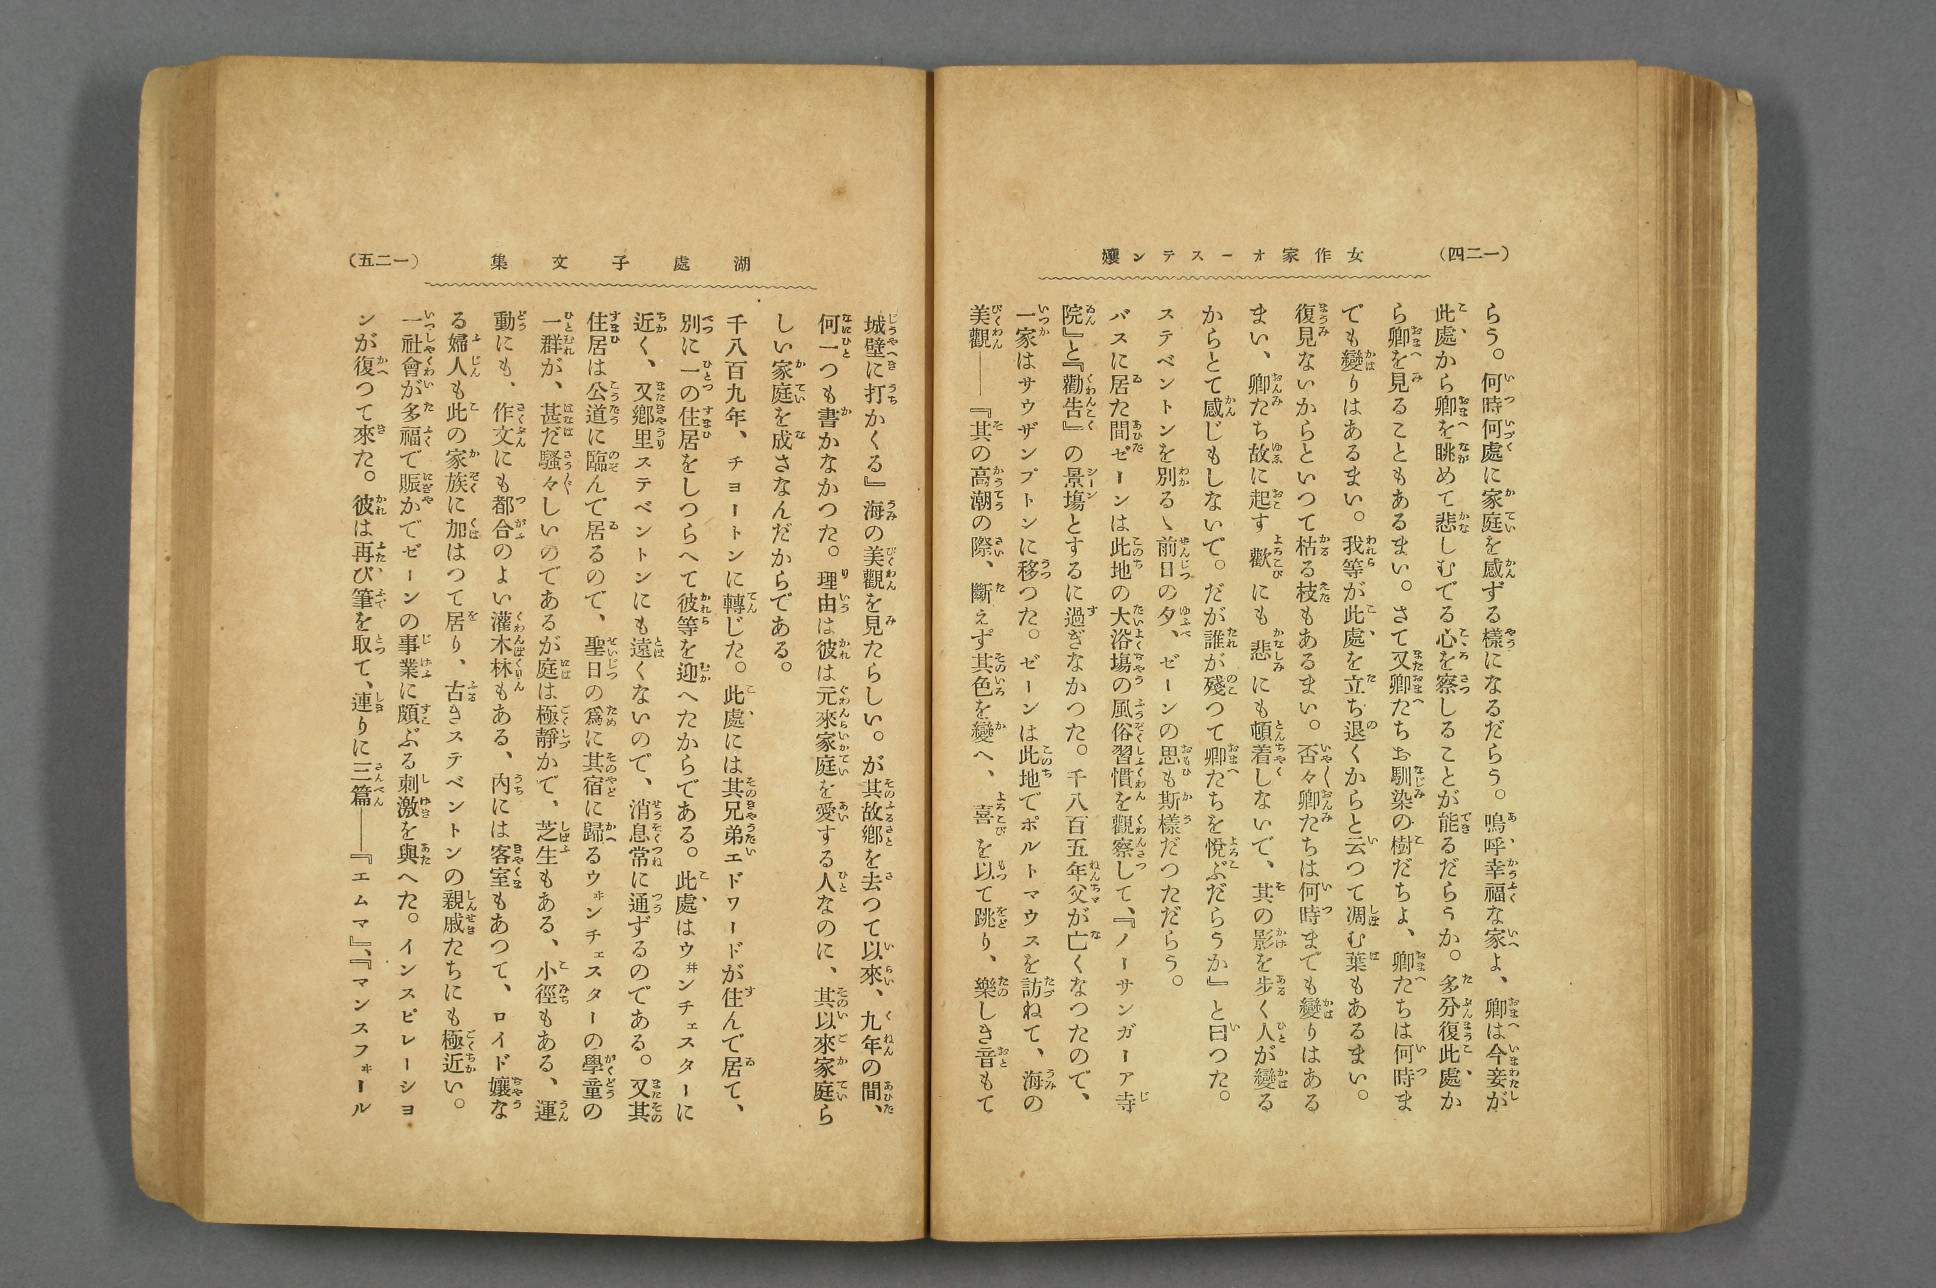 （一二四）
女作家オーステン孃
らう。何時何處に家庭を感ずる樣になるだらう。嗚呼幸福な家よ、卿は今妾が
此處から卿を眺めて悲しむでる心を察しることが能るだらうか。多分復此處か
ら卿を見ることもあるまい。さて又卿たちお馴染の樹だちよ、卿たちは何時ま
でも變りはあるまい。我等が此處を立ち退くからと云つて凋む葉もあるまい。
復見ないからといつて枯る枝もあるまい。否々卿たちは何時までも變りはある
まい、卿たち故に起す歡にも悲にも頓着しないで、其の影を歩く人が變る
からとて感じもしないで。だが誰が殘つて卿たちを悅ぶだらうか』と曰つた。
ステベントンを別るヽ前日の夕、ゼーンの思も斯樣だつただらう。
バスに居た間ゼーンは此地の大浴塲の風俗習慣を觀察して、『ノーサンガーア寺
院』と『勸告』の景塲とするに過ぎなかつた。千八百五年父が亡くなつたので、
一家はサウザンプトンに移つた。ゼーンは此地でポルトマウスを訪ねて、海の
美觀――『其の高潮の際、斷えず其色を變へ、喜を以て跳り、樂しき音もて
湖處子文集
（一二五）
城壁に打かくる』海の美觀を見たらしい。が其故鄕を去つて以來、九年の間、
何一つも書かなかつた。理由は彼は元來家庭を愛する人なのに、其以來家庭ら
しい家庭を成さなんだからである。
千八百九年、チョートンに轉じた。此處には其兄弟エドワードが住んで居て、
別に一の住居をしつらへて彼等を迎へたからである。此處はウヰンチェスターに
近く、又鄕里ステベントンにも遠くないので、消息常に通ずるのである。又其
住居は公道に臨んで居るので、聖日の爲に其宿に歸るウヰンチェスターの學童の
一群が、甚だ騷々しいのであるが庭は極靜かで、芝生もある、小徑もある、運
動にも、作文にも都合のよい灌木林もある、内には客室もあつて、ロイド孃な
る婦人も此の家族に加はつて居り、古きステベントンの親戚たちにも極近い。
一社會が多福で賑かでゼーンの事業に頗ぶる刺激を與へた。インスピレーショ
ンが復つて來た。彼は再び筆を取て、連りに三篇――『エムマ』、『マンスフヰール